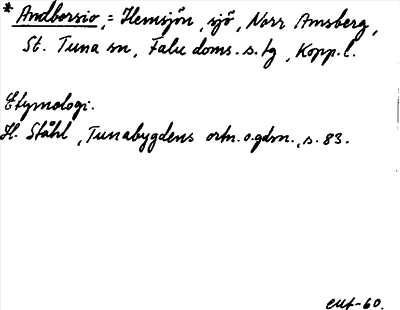 * Andborsio, = Hemsjön, sjö, Norr Amsberg,
St. Tuna sn, Falu doms. s. tg, Kopp. l.
Etymologi.
H. Ståhl, Tunabygdens ortn. o. gdsn., s. 83.
-60.